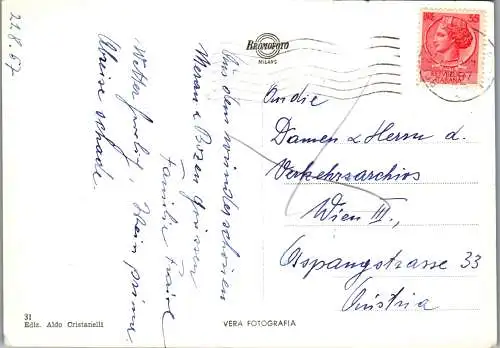 22.8.57
BROMOFOTO
MILANO
LIRE 35
Aus dem wunderschönen
Meran u Bozen grüssen
Familie
Wetter herrlich. Wein prima.
Abreise schade.
An die
Damen u Herrn d.
Verkehrsarchivs
Wien III.,
Aspangstrasse 33
Austria
31
Ediz. Aldo Cristanelli
VERA FOTOGRAFIA